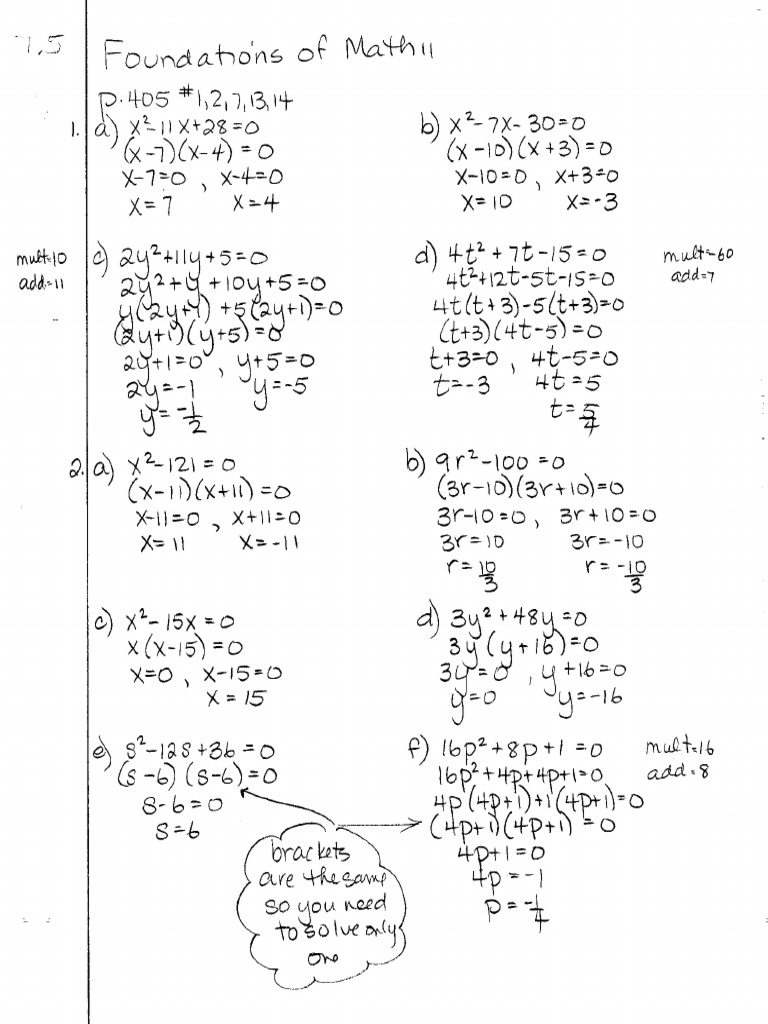 7.5 Foundations of Math 11
p.405 #1,2,7,13,14
1. a) x²-11x+28=0
(x-7)(x-4)=0
x-7=0, x-4=0
x=7 x=4
b) x²-7x-30=0
(x-10)(x+3)=0
x-10=0, x+3=0
x=10 x=-3
mult=10
add=11
c) 2y²+11y+5=0
2y²+y+10y+5=0
y(2y+1)+5(2y+1)=0
(2y+1)(y+5)=0
2y+1=0, y+5=0
2y=-1 y=-5
y=-1/2
d) 4t²+7t-15=0
4t²+12t-5t-15=0
4t(t+3)-5(t+3)=0
(t+3)(4t-5)=0
t+3=0, 4t-5=0
t=-3 4t=5
t=5/4
mult=-60
add=7
2. a) x²-121=0
(x-11)(x+11)=0
x-11=0, x+11=0
x=11 x=-11
b) 9r²-100=0
(3r-10)(3r+10)=0
3r-10=0, 3r+10=0
3r=10 3r=-10
r=10/3 r=-10/3
c) x²-15x=0
x(x-15)=0
x=0, x-15=0
x=15
d) 3y²+48y=0
3y(y+16)=0
3y=0, y+16=0
y=0 y=-16
e) s²-12s+36=0
(s-6)(s-6)=0
s-6=0
s=6
brackets
are the same
so you need
to solve only
one
f) 16p²+8p+1=0
16p²+4p+4p+1=0
4p(4p+1)+1(4p+1)=0
(4p+1)(4p+1)=0
4p+1=0
4p=-1
p=-1/4
mult=16
add=8